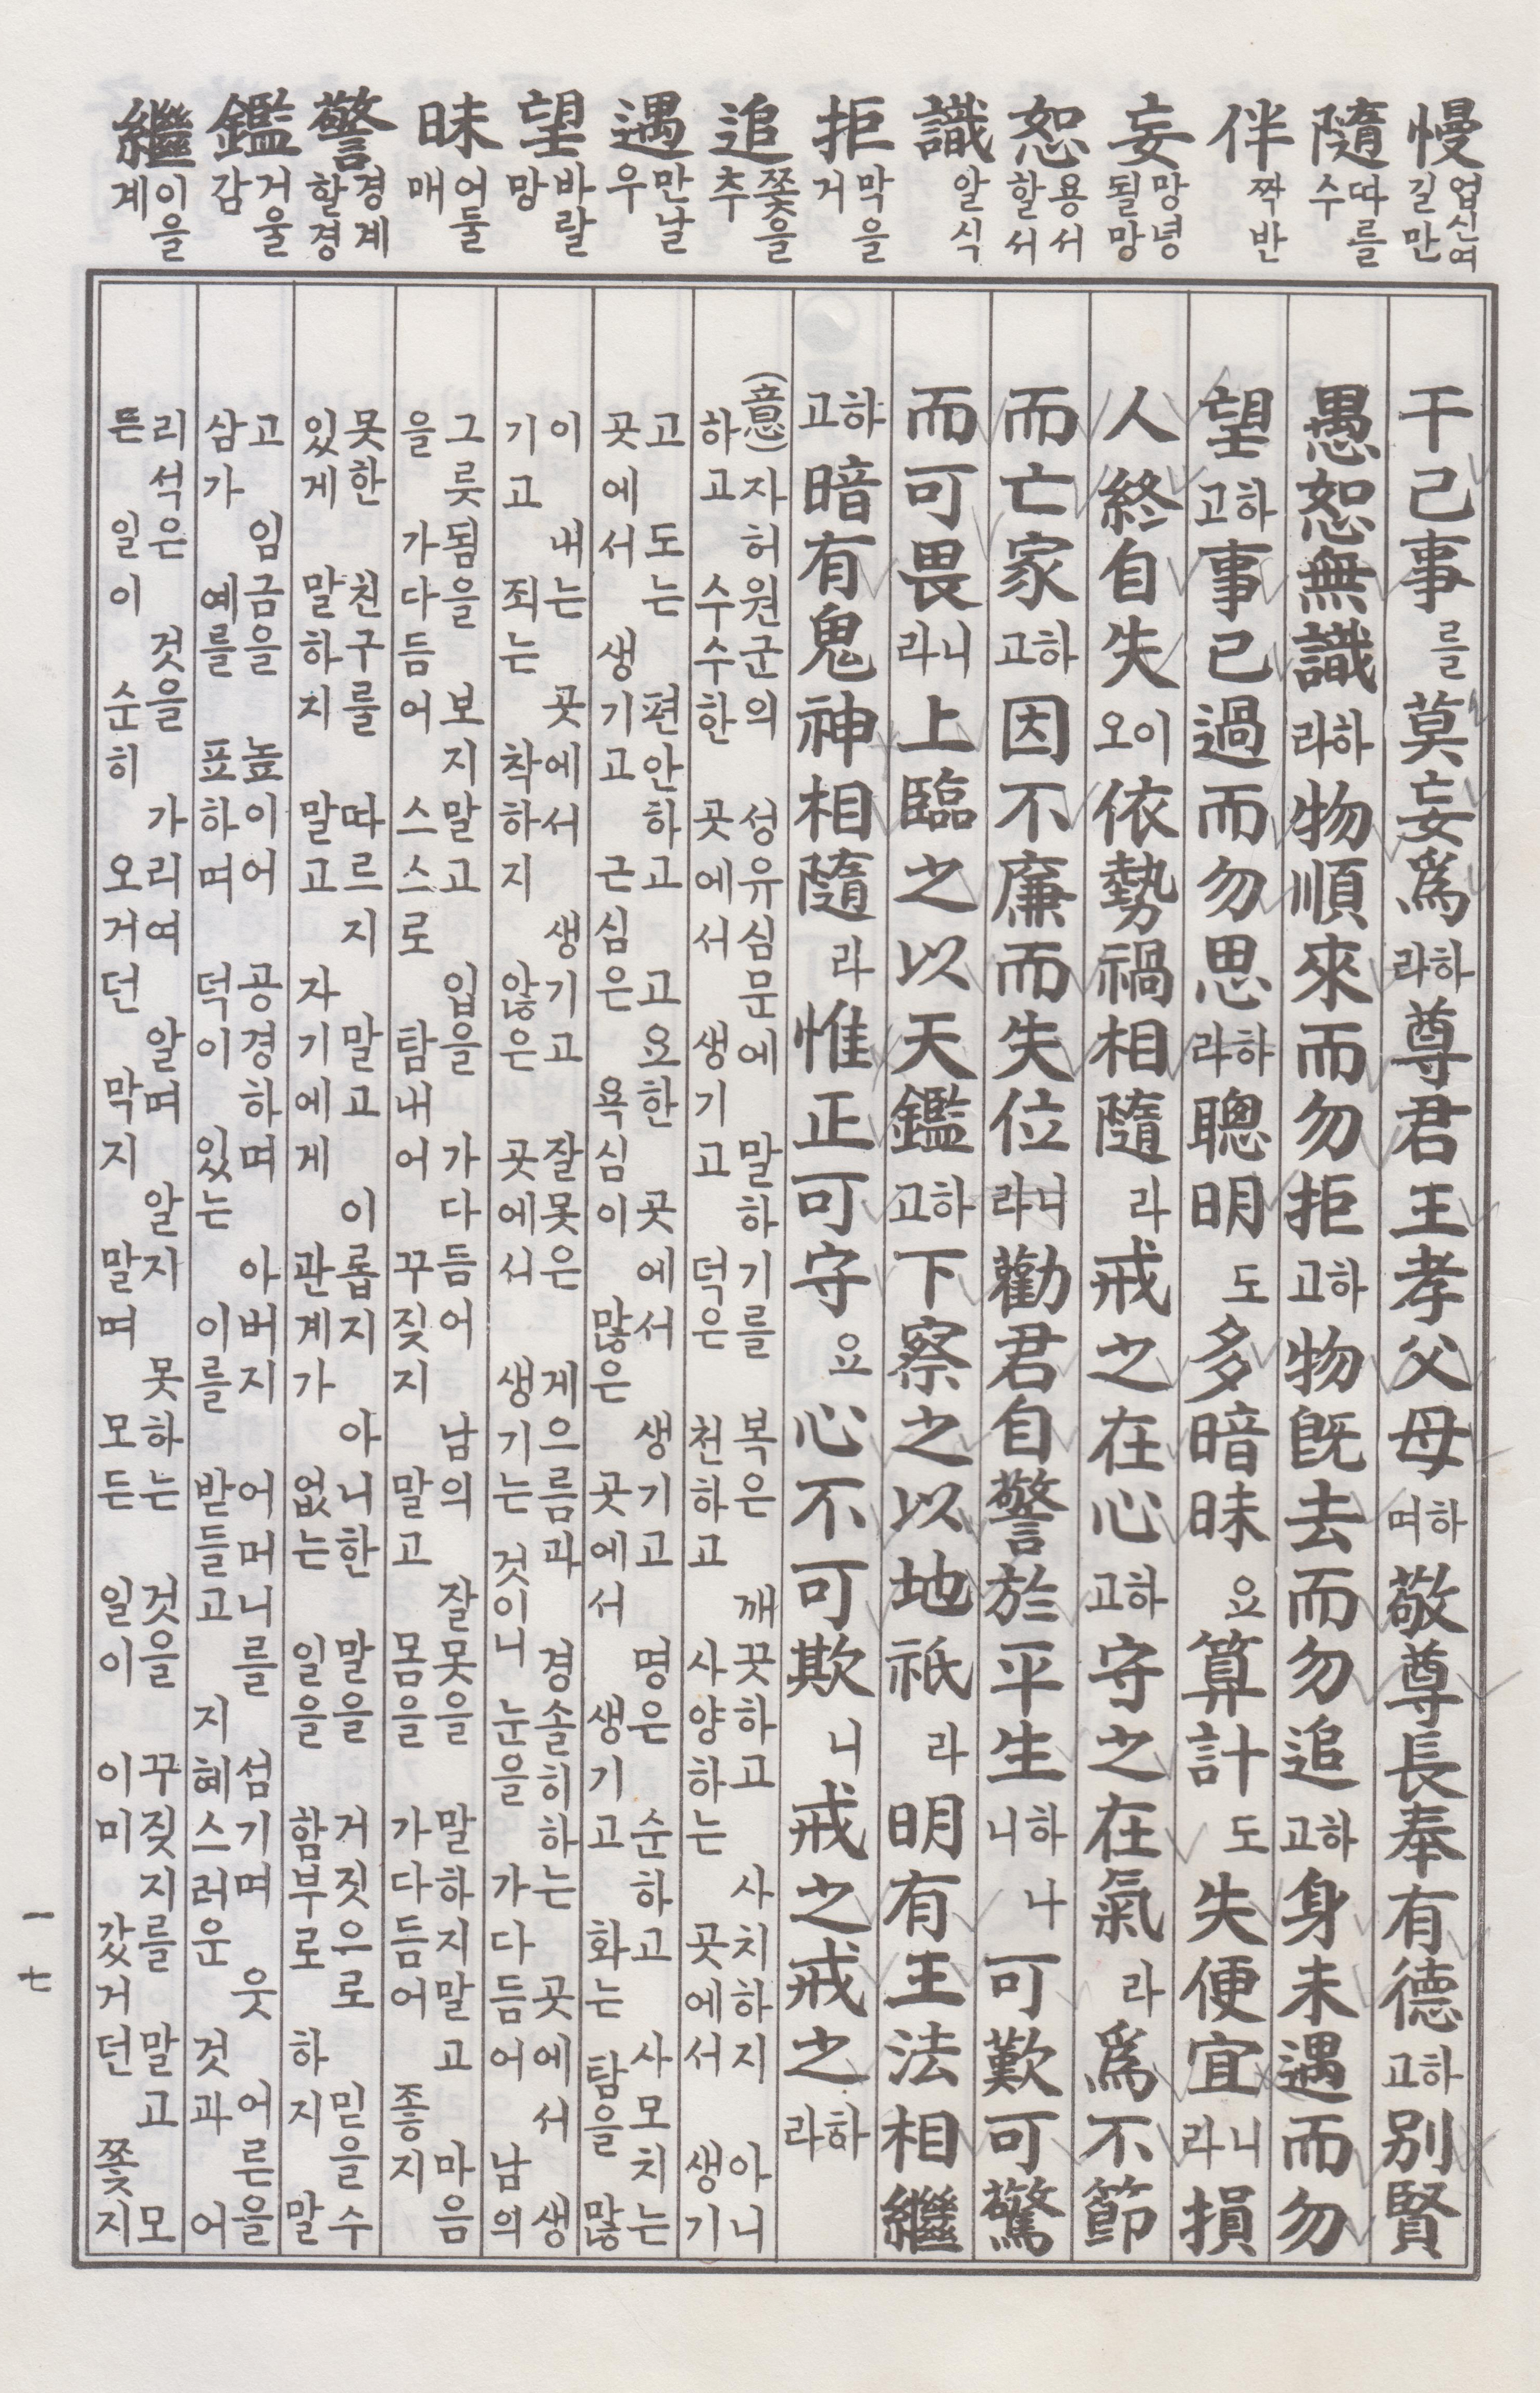 慢 업신여길만
隨 따를수
伴 짝반
妄 망녕될망
恕 용서할서
識 알식
拒 막을거
追 쫓을추
遇 만날우
望 바랄망
昧 어둘매
警 경계할경
鑑 거울감
繼 이을계
干己事를莫妄爲하라尊君王孝父母하며敬尊長奉有德하고別賢
愚恕無識하라物順來而勿拒하고物旣去而勿追하고身未遇而勿
望하고事已過而勿思하라聰明도多暗昧요算計도失便宜니라損
人終自失이오依勢禍相隨라戒之在心하고守之在氣라爲不節
而亡家하고因不廉而失位니라勸君自警於平生하니나可歎可驚
而可畏니라上臨之以天鑑하고下察之以地祇라明有王法相繼
하고暗有鬼神相隨라惟正可守요心不可欺니戒之戒之하라
(意)자허원군의 성유심문에 말하기를 복은 깨끗하고 사치하지 아니
하고 수수한 곳에서 생기고 덕은 천하고 사양하는 곳에서 생기
고 도는 편안하고 고요한 곳에서 생기고 명은 순하고 사모치는
곳에서 생기고 근심은 욕심이 많은 곳에서 생기고 화는 탐을 많
이 내는 곳에서 생기고 잘못은 게으름과 경솔히 하는 곳에서 생
기고 죄는 착하지 않은 곳에서 생기는 것이니 눈을 가다듬어 남의
그릇됨을 보지말고 입을 가다듬어 남의 잘못을 말하지말고 마음
을 가다듬어 스스로 탐내어 꾸짖지 말고 몸을 가다듬어 좋지
못한 친구를 따르지 말고 이롭지 아니한 말을 거짓으로 믿을수
있게 말하지 말고 자기에게 관계가 없는 일을 함부로 하지 말
고 임금을 높이어 공경하며 아버지 어머니를 섬기며 웃어른을
삼가 예를 표하며 덕이 있는 이를 받들고 지혜스러운 것과 어
리석은 것을 가리여 알며 알지 못하는 것을 꾸짖지를 말고 모
든 일이 순히 오거던 막지 말며 모든 일이 이미 갔거던 쫓지
一七